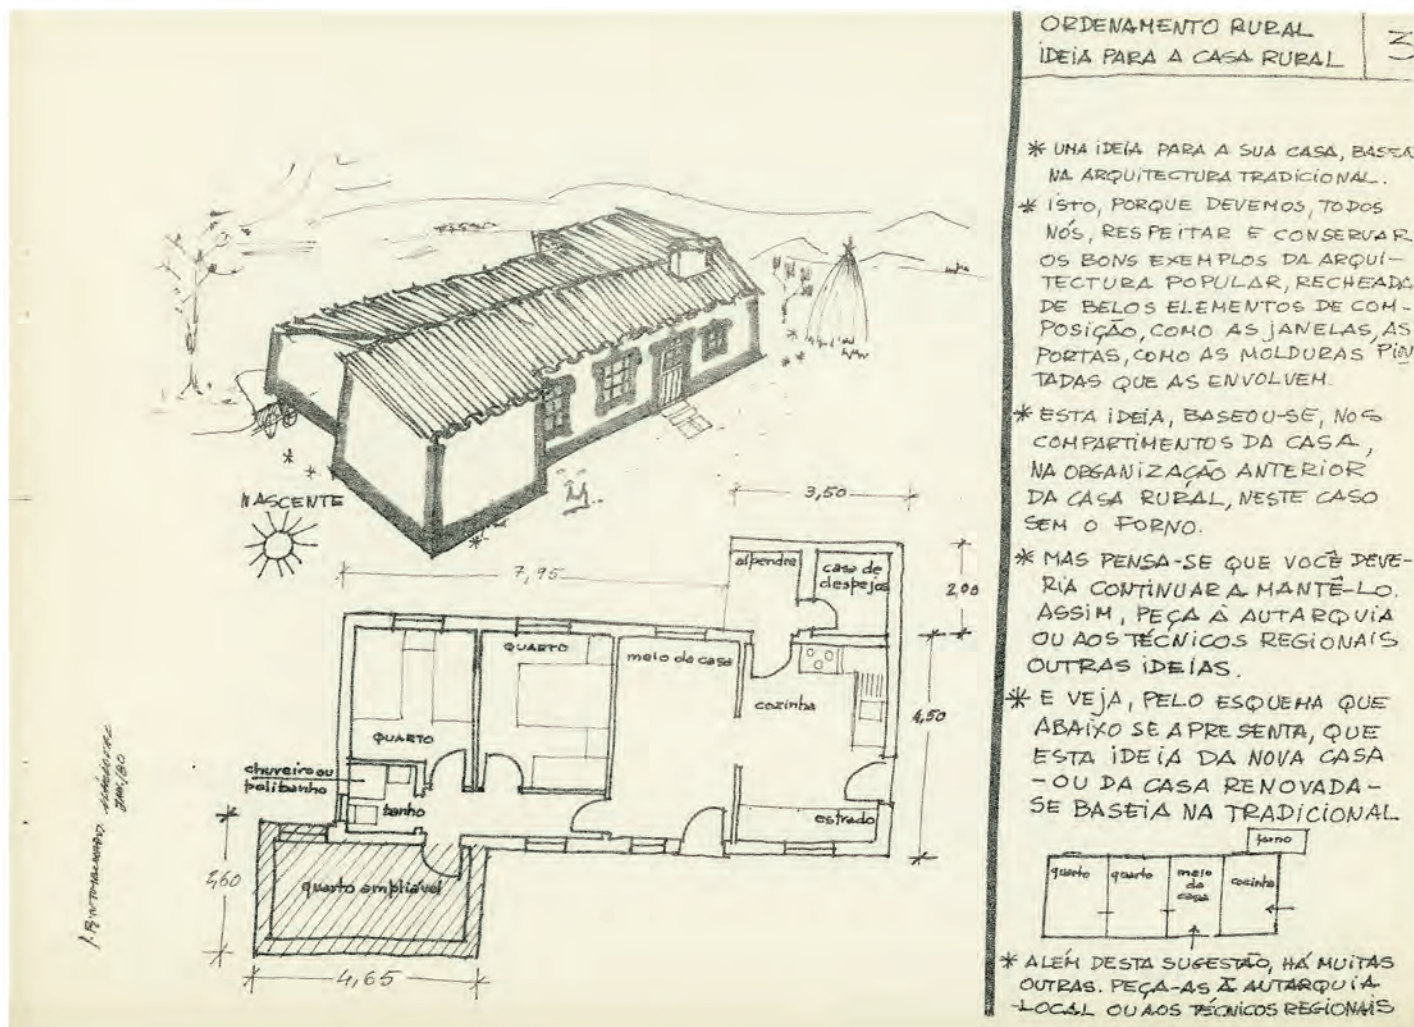 ORDENAMENTO RURAL
IDEIA PARA A CASA RURAL
3
* UMA IDEIA PARA A SUA CASA, BASEA
NA ARQUITECTURA TRADICIONAL.
* ISTO, PORQUE DEVEMOS, TODOS
NÓS, RESPEITAR E CONSERVAR
OS BONS EXEMPLOS DA ARQUI-
TECTURA POPULAR, RECHEADA
DE BELOS ELEMENTOS DE COM-
POSIÇÃO, COMO AS JANELAS, AS
PORTAS, COMO AS MOLDURAS PIN
TADAS QUE AS ENVOLVEM.
* ESTA IDEIA, BASEOU-SE, NOS
COMPARTIMENTOS DA CASA,
NA ORGANIZAÇÃO ANTERIOR
DA CASA RURAL, NESTE CASO
SEM O FORNO.
* MAS PENSA-SE QUE VOCÊ DEVE-
RIA CONTINUAR A MANTÊ-LO.
ASSIM, PEÇA À AUTARQUIA
OU AOS TÉCNICOS REGIONAIS
OUTRAS IDEIAS.
* E VEJA, PELO ESQUEMA QUE
ABAIXO SE APRESENTA, QUE
ESTA IDEIA DA NOVA CASA
- OU DA CASA RENOVADA -
SE BASEIA NA TRADICIONAL
forno
quarto
quarto
meio
da
casa
cozinha
* ALÉM DESTA SUGESTÃO, HÁ MUITAS
OUTRAS. PEÇA-AS À AUTARQUIA
LOCAL OU AOS TÉCNICOS REGIONAIS
NASCENTE
3,50
7,95
alpendre
casa de
despejos
2,00
QUARTO
meio da casa
cozinha
4,50
QUARTO
chuveiro ou
polibanho
banho
estrado
2,60
quarto ampliável
4,65
JAN/80